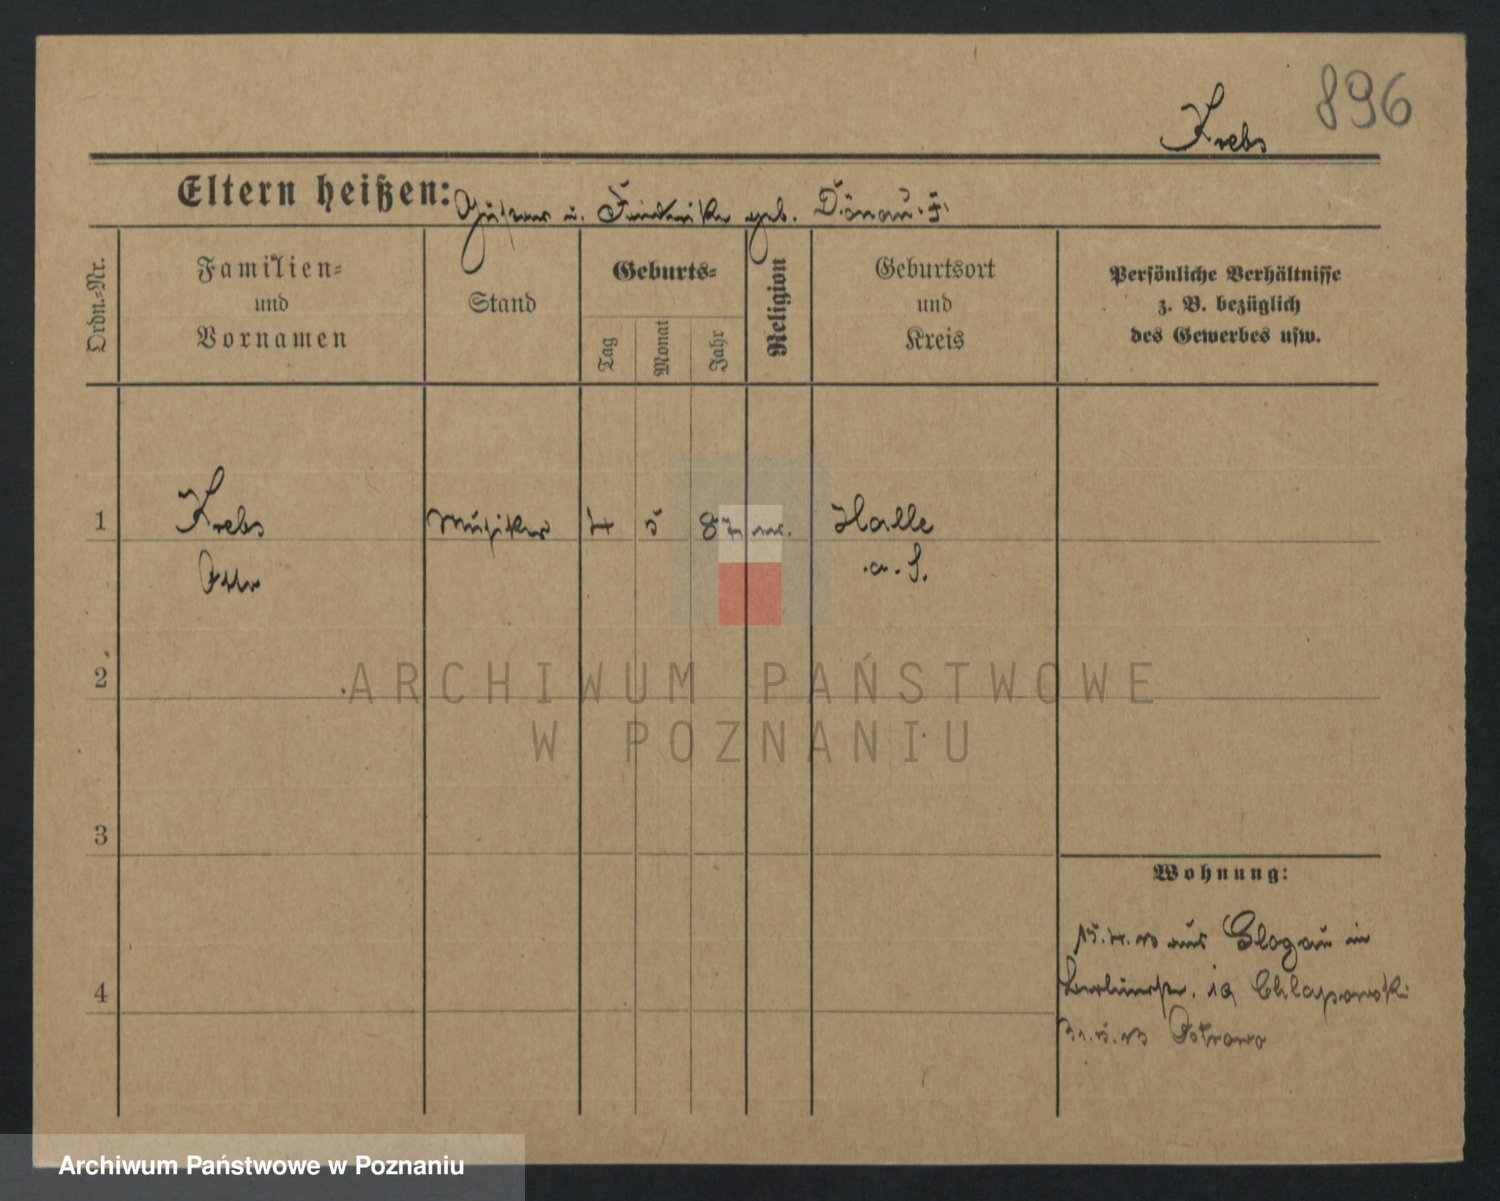 896
Krebs
Eltern heißen: Gustav u. Friederike geb. Donau. †.
Ordn.=Nr.
Familien= und Vornamen
Stand
Geburts=
Tag
Monat
Jahr
Religion
Geburtsort und Kreis
Persönliche Verhältnisse
z. B. bezüglich
des Gewerbes usw.
1 Krebs Musiker 4 5 87 ev. Halle
Otto a. S.
2
3
4
ARCHIWUM PAŃSTWOWE
W POZNANIU
Wohnung:
15.4. aus Glogau in
Berlinerstr. 19 Chlapowski
Ostrowo
Archiwum Państwowe w Poznaniu